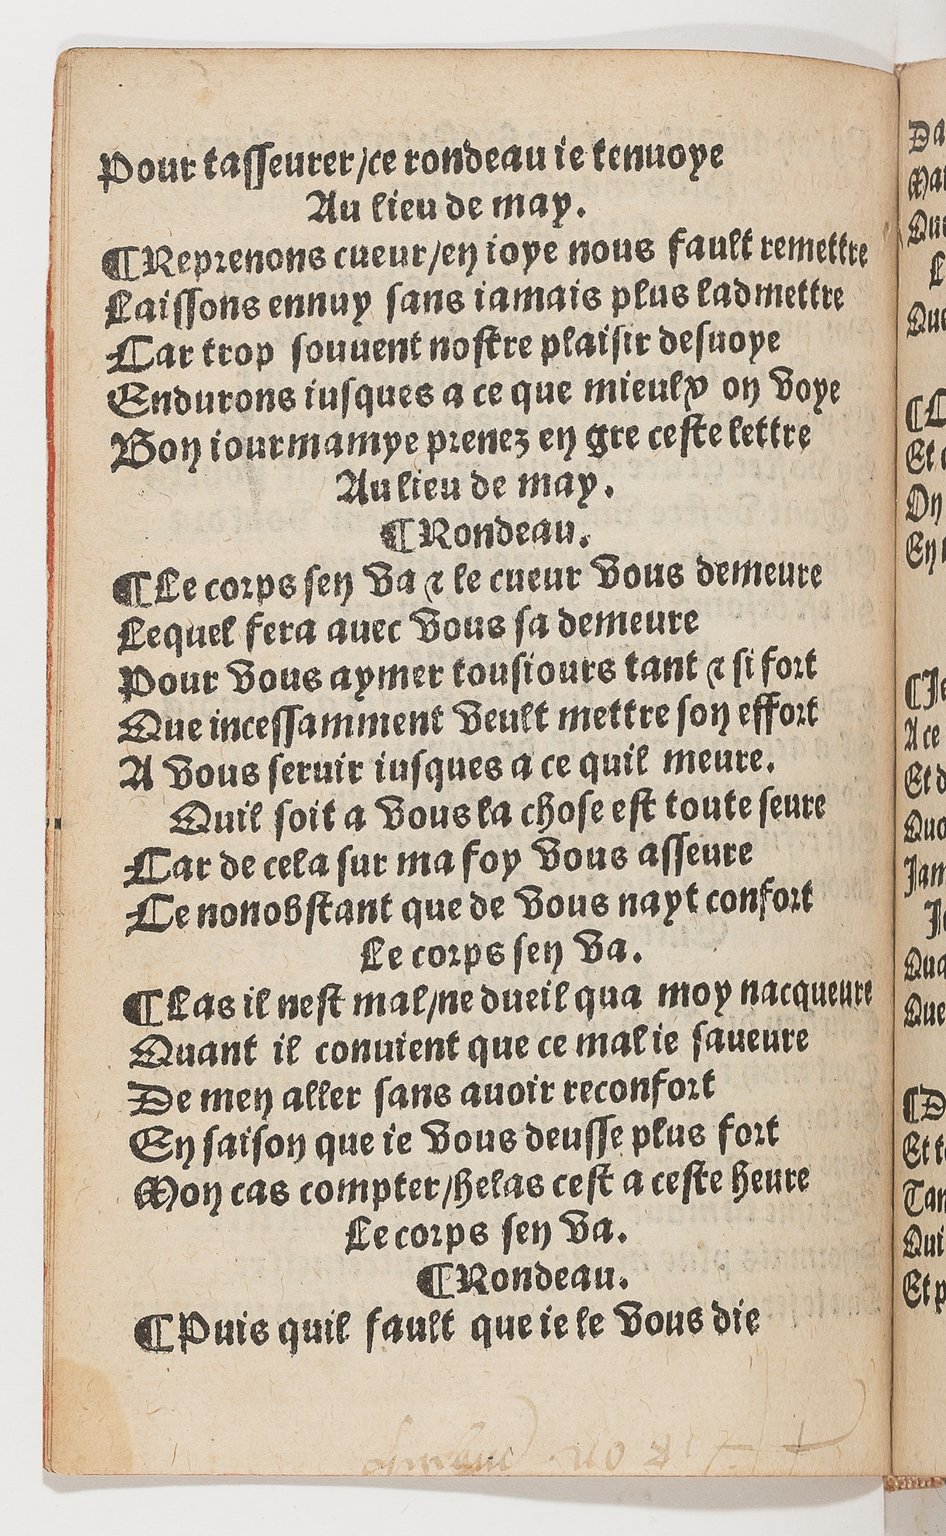 Pour tasseurer/ce rondeau ie tenuoye
Au lieu de may.
¶Reprenons cueur/en ioye nous fault remettre
Laissons ennuy sans iamais plus ladmettre
Car trop souuent nostre plaisir desuoye
Endurons iusques a ce que mieulx on voye
Bon iour mamye prenez en gre ceste lettre
Au lieu de may.
¶Rondeau.
¶Le corps sen va & le cueur vous demeure
Lequel fera auec vous sa demeure
Pour vous aymer tousiours tant & si fort
Que incessamment veult mettre son effort
A vous seruir iusques a ce quil meure.
Quil soit a vous la chose est toute seure
Car de cela sur ma foy vous asseure
Ce nonobstant que de vous nayt confort
Le corps sen va.
¶Las il nest mal/ne dueil qua moy nacqueure
Quant il conuient que ce mal ie saueure
De men aller sans auoir reconfort
En saison que ie vous deusse plus fort
Mon cas compter/helas cest a ceste heure
Le corps sen va.
¶Rondeau.
¶Puis quil fault que ie le vous die